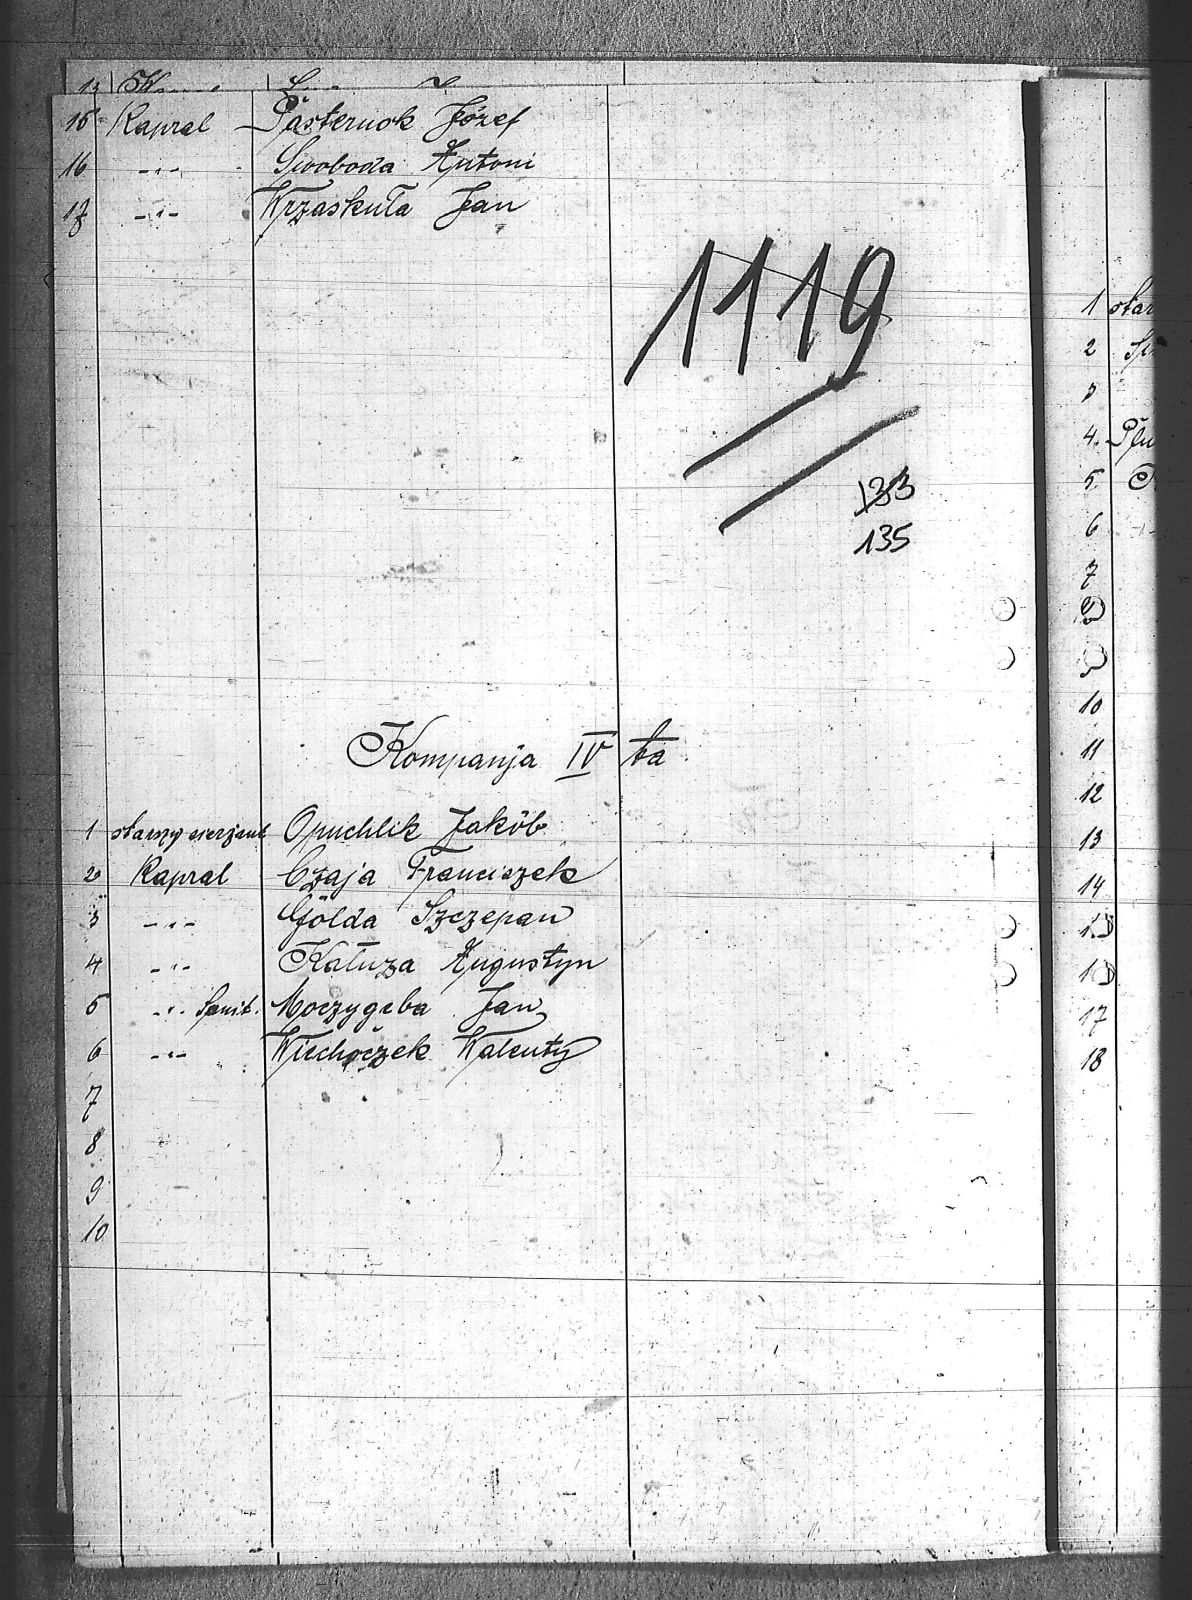 15 Kapral Pasternok Józef
16 -"- Swoboda Antoni
17 -"- Wrzaskuła Jan
1119
133
135
Kompanja IV ta
1 starszy sierżant Opuchlik Jakób
2 Kapral Czaja Franciszek
3 -"- Gölda Szczepan
4 -"- Kałuza Augustyn
5 -"- Sanit. Moczygęba Jan
6 -"- Wiechoczek Walenty
7
8
9
10
1 star
2
3
4.
5
6
7
10
11
12
13
14
17
18